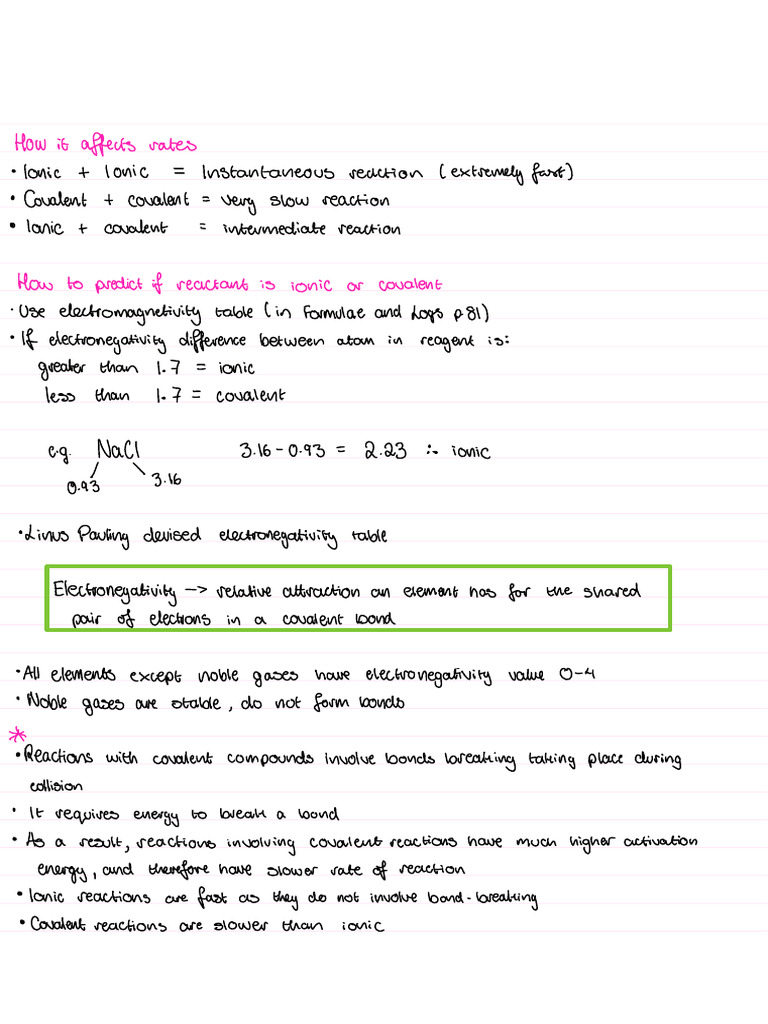 How it affects rates
• Ionic + Ionic = Instantaneous reaction (extremely fast)
• Covalent + covalent = very slow reaction
• Ionic + covalent = intermediate reaction
How to predict if reactant is ionic or covalent
• Use electromagnetivity table (in Formulae and Logs p81)
• If electronegativity difference between atom in reagent is:
greater than 1.7 = ionic
less than 1.7 = covalent
e.g. NaCl 3.16 - 0.93 = 2.23 ∴ ionic
0.93 3.16
• Linus Pauling devised electronegativity table
Electronegativity -> relative attraction an element has for the shared
pair of electrons in a covalent bond
• All elements except noble gases have electronegativity value 0-4
• Noble gases are stable, do not form bonds
*
• Reactions with covalent compounds involve bonds breaking taking place during
collision
• It requires energy to break a bond
• As a result, reactions involving covalent reactions have much higher activation
energy, and therefore have slower rate of reaction
• Ionic reactions are fast as they do not involve bond-breaking
• Covalent reactions are slower than ionic